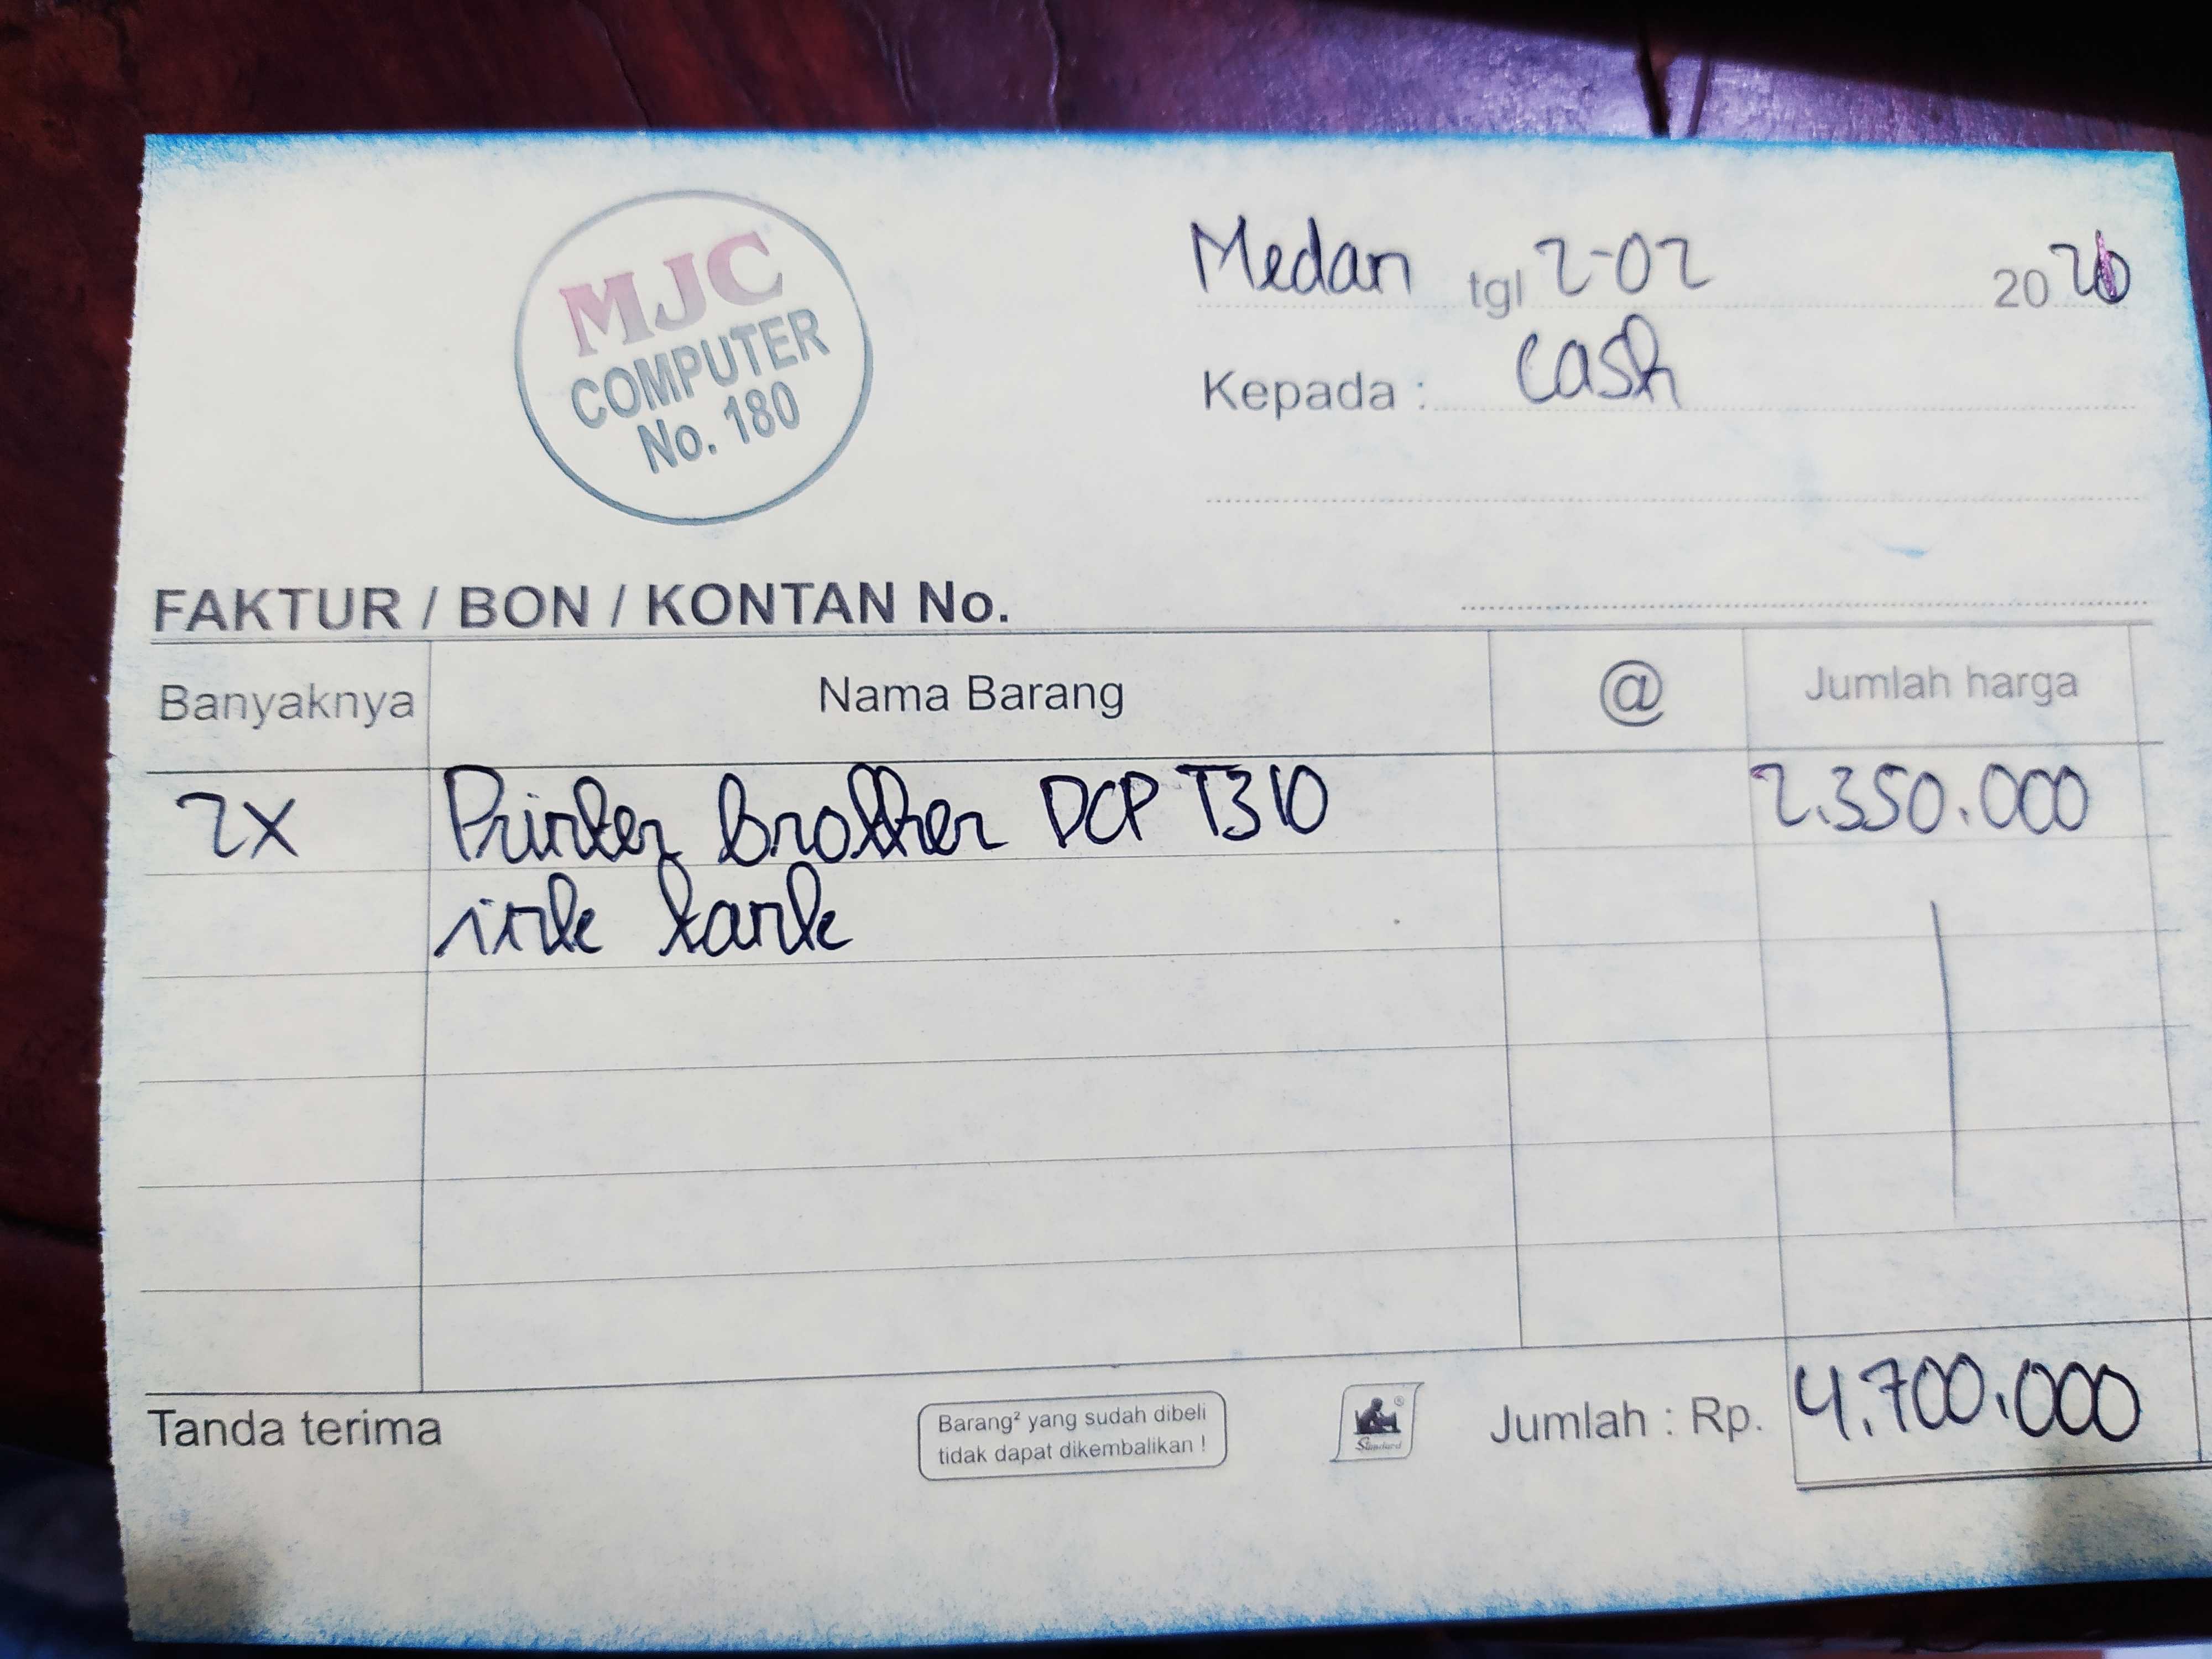 MJC
COMPUTER
No. 180
Medan tgl 2-02 20
Kepada : Cash
FAKTUR / BON / KONTAN No.
Banyaknya Nama Barang @ Jumlah harga
2X Printer Brother DCP T310 2.350.000
ink tank
Tanda terima
Barang² yang sudah dibeli
tidak dapat dikembalikan !
Standard
Jumlah : Rp. 4.700.000